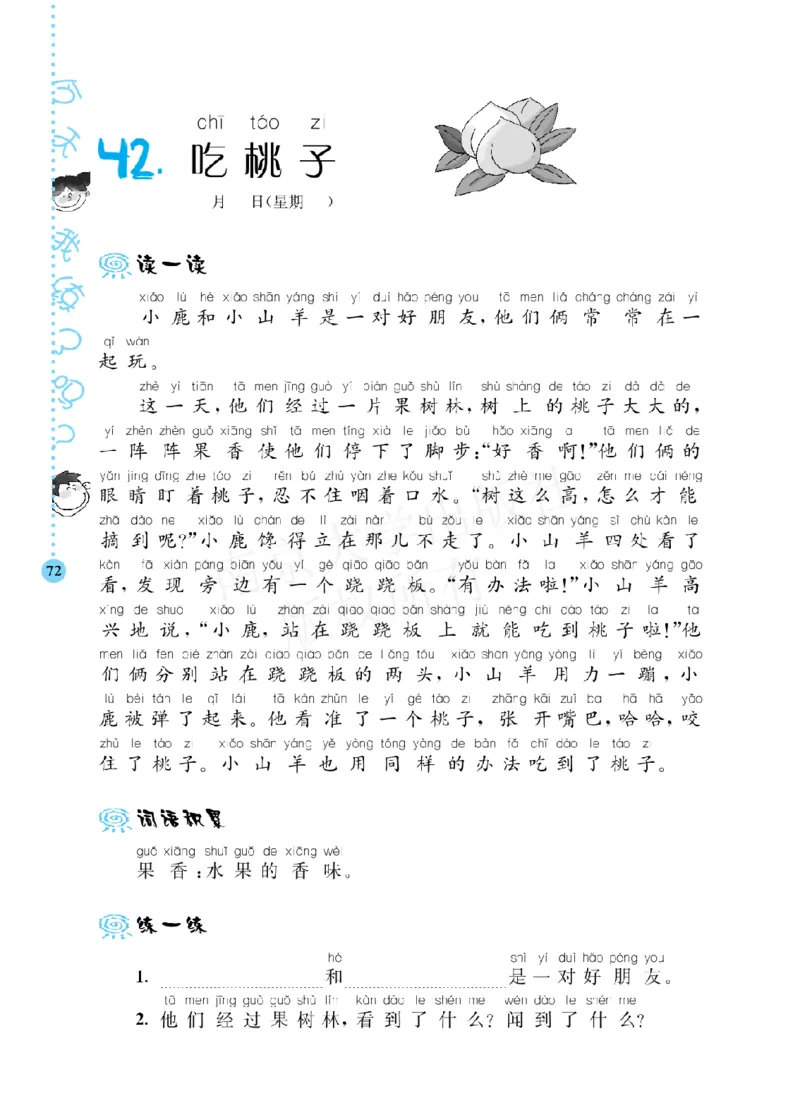 chī táo zi
42. 吃桃子
月 日(星期 )
读一读
xiǎo lù hé xiǎo shān yáng shì yí duì hǎo péng you tā men liǎ cháng cháng zài yì
小鹿和小山羊是一对好朋友,他们俩常常在一
qǐ wán
起玩。
zhè yì tiān tā men jīng guò yí piàn guǒ shù lín shù shàng de táo zi dà dà de
这一天,他们经过一片果树林,树上的桃子大大的,
yí zhèn zhèn guǒ xiāng shǐ tā men tíng xià le jiǎo bù hǎo xiāng a tā men liǎ de
一阵阵果香使他们停下了脚步:“好香啊!”他们俩的
yǎn jing dīng zhe táo zi rěn bú zhù yàn zhe kǒu shuǐ shù zhè me gāo zěn me cái néng
眼睛盯着桃子,忍不住咽着口水。“树这么高,怎么才能
zhāi dào ne xiǎo lù chán de lì zài nàr bù zǒu le xiǎo shān yáng sì chù kàn le
摘到呢?”小鹿馋得立在那儿不走了。小山羊四处看了
kàn fā xiàn páng biān yǒu yí gè qiāo qiāo bǎn yǒu bàn fǎ la xiǎo shān yáng gāo
看,发现旁边有一个跷跷板。“有办法啦!”小山羊高
xìng de shuō xiǎo lù zhàn zài qiāo qiāo bǎn shàng jiù néng chī dào táo zi la tā
兴地说,“小鹿,站在跷跷板上就能吃到桃子啦!”他
men liǎ fēn bié zhàn zài qiāo qiāo bǎn de liǎng tóu xiǎo shān yáng yòng lì yí bèng xiǎo
们俩分别站在跷跷板的两头,小山羊用力一蹦,小
lù bèi tán le qǐ lái tā kàn zhǔn le yí gè táo zi zhāng kāi zuǐ ba hā hā yǎo
鹿被弹了起来。他看准了一个桃子,张开嘴巴,哈哈,咬
zhù le táo zi xiǎo shān yáng yě yòng tóng yàng de bàn fǎ chī dào le táo zi
住了桃子。小山羊也用同样的办法吃到了桃子。
72
词语积累
guǒ xiāng shuǐ guǒ de xiāng wèi
果香:水果的香味。
练一练
hé shì yí duì hǎo péng you
1. 和 是一对好朋友。
tā men jīng guò guǒ shù lín kàn dào le shén me wén dào le shén me
2. 他们经过果树林,看到了什么?闻到了什么?